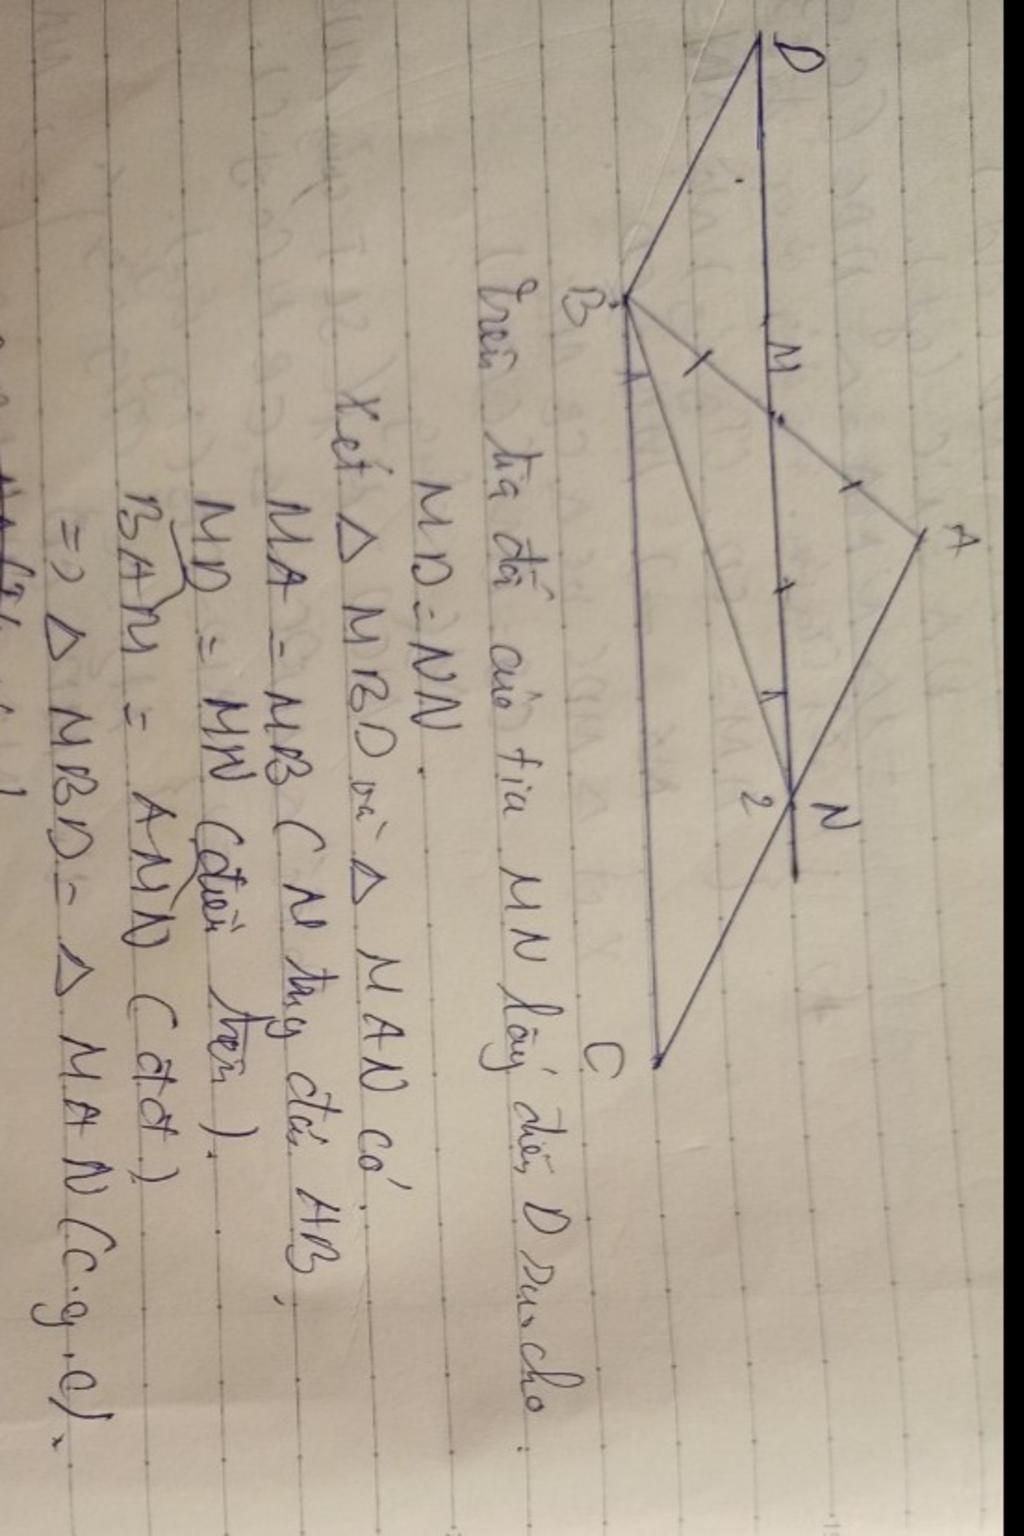 D
A
M
N
2
B
C
Trên tia đối của tia MN lấy điểm D sao cho
MD = NN
Xét △ MBD và △ MAN có
MA = MB (M trung đ AB,
MD = MN (điều trên).
BAM = AMN (đđ)
=> △ MBD = △ MAN (c.g.c).